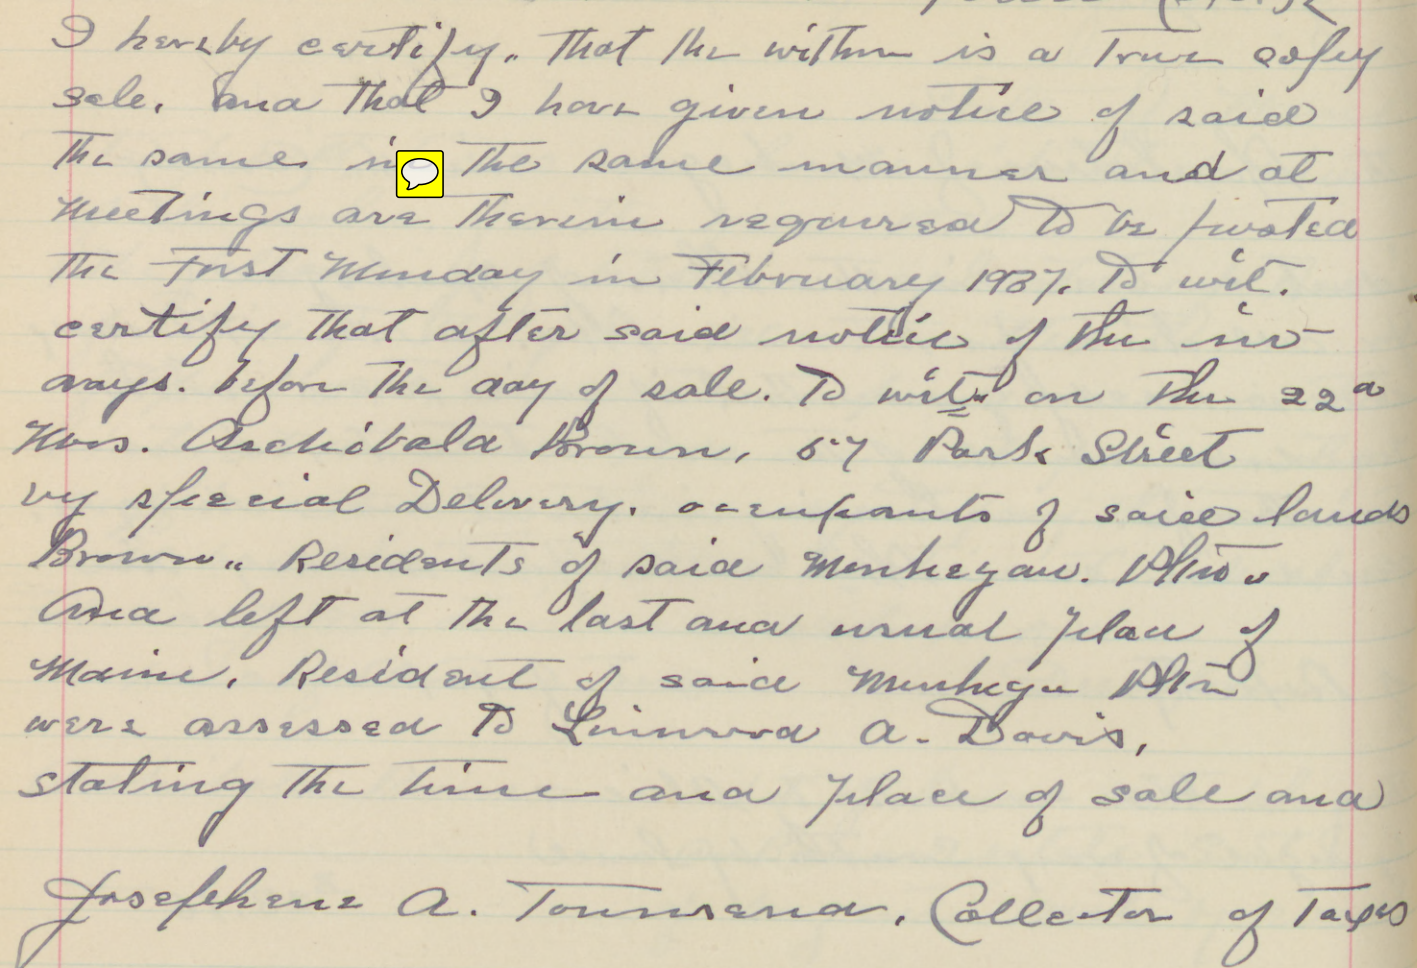 I hereby certify. That the within is a True copy
sale. and that I have given notice of said
The same in the same manner and at
Meetings are therein required To be posted
The First Monday in February 1937. To wit.
certify That after said notice of the
days. before The day of sale. To wit. on The 22d
Mrs. Archibald Brown, 57 Park Street
by special Delivery. occupants of said lands
Brown.. Residents of said Monhegan. Pltn.
And left at The last and usual place of
Maine. Resident of said Monhegan Pltn
were assessed To Linwood A. Davis,
stating The time and place of sale and
Josephene A. Townsend, Collector of Taxes